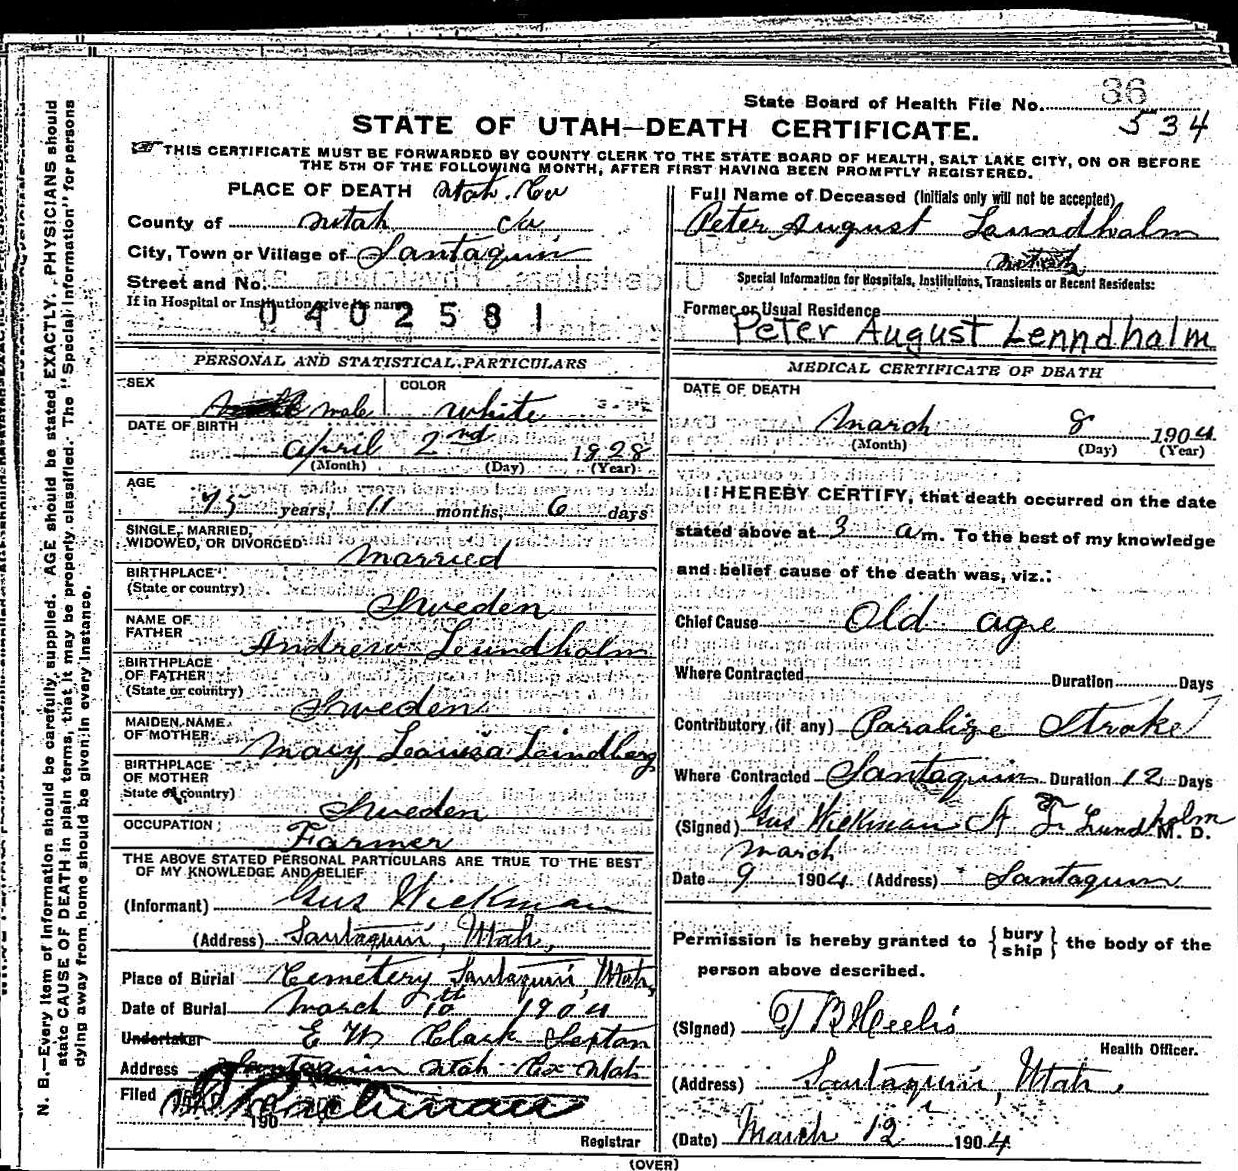 36
State Board of Health File No. 534
STATE OF UTAH—DEATH CERTIFICATE.
THIS CERTIFICATE MUST BE FORWARDED BY COUNTY CLERK TO THE STATE BOARD OF HEALTH, SALT LAKE CITY, ON OR BEFORE
THE 5TH OF THE FOLLOWING MONTH, AFTER FIRST HAVING BEEN PROMPTLY REGISTERED.
PLACE OF DEATH Utah. Co
County of Utah Co
City, Town or Village of Santaquin
Street and No.
If in Hospital or Institution give its name
0402581
PERSONAL AND STATISTICAL PARTICULARS
SEX male COLOR white
DATE OF BIRTH
April 2nd 1828
(Month) (Day) (Year)
AGE
75 years, 11 months, 6 days
SINGLE, MARRIED,
WIDOWED, OR DIVORCED Married
BIRTHPLACE
(State or country) Sweden
NAME OF
FATHER Andrew Leundholm
BIRTHPLACE
OF FATHER
(State or country) Sweden
MAIDEN NAME
OF MOTHER Mary Louisa Lindberg
BIRTHPLACE
OF MOTHER
State or country) Sweden
OCCUPATION Farmer
THE ABOVE STATED PERSONAL PARTICULARS ARE TRUE TO THE BEST
OF MY KNOWLEDGE AND BELIEF
(Informant) Gus Wickman
(Address) Santaquin, Utah,
Place of Burial Cemetery Santaquin, Utah,
Date of Burial March 10th 1904
Undertaker E W Clark Sexton
Address Santaquin Utah Co Utah
Filed 190
Registrar
Full Name of Deceased (Initials only will not be accepted)
Peter August Leundholm
Utah
Special Information for Hospitals, Institutions, Transients or Recent Residents:
Former or Usual Residence
Peter August Lenndholm
MEDICAL CERTIFICATE OF DEATH
DATE OF DEATH
March 8 1904
(Month) (Day) (Year)
I HEREBY CERTIFY, that death occurred on the date
stated above at 3 a m. To the best of my knowledge
and belief cause of the death was, viz.:
Chief Cause Old age
Where Contracted Duration Days
Contributory (if any) Paralize Stroke
Where Contracted Santaquin Duration 12 Days
(Signed) Gus Wickman A F Lundholm M. D.
March
Date 9 1904 (Address) Santaquin
Permission is hereby granted to { bury
ship } the body of the
person above described.
(Signed)
Health Officer.
(Address) Santaquin, Utah.
(Date) March 12 1904
(OVER)
N. B.—Every item of information should be carefully supplied. AGE should be stated EXACTLY. PHYSICIANS should
state CAUSE OF DEATH in plain terms, that it may be properly classified. The "Special Information" for persons
dying away from home should be given in every instance.